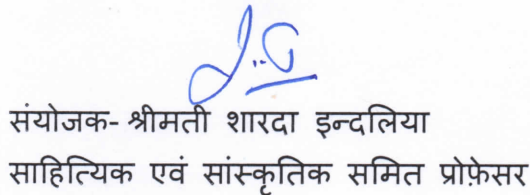 संयोजक- श्रीमती शारदा इन्दलिया
साहित्यिक एवं सांस्कृतिक समित प्रोफ़ेसर